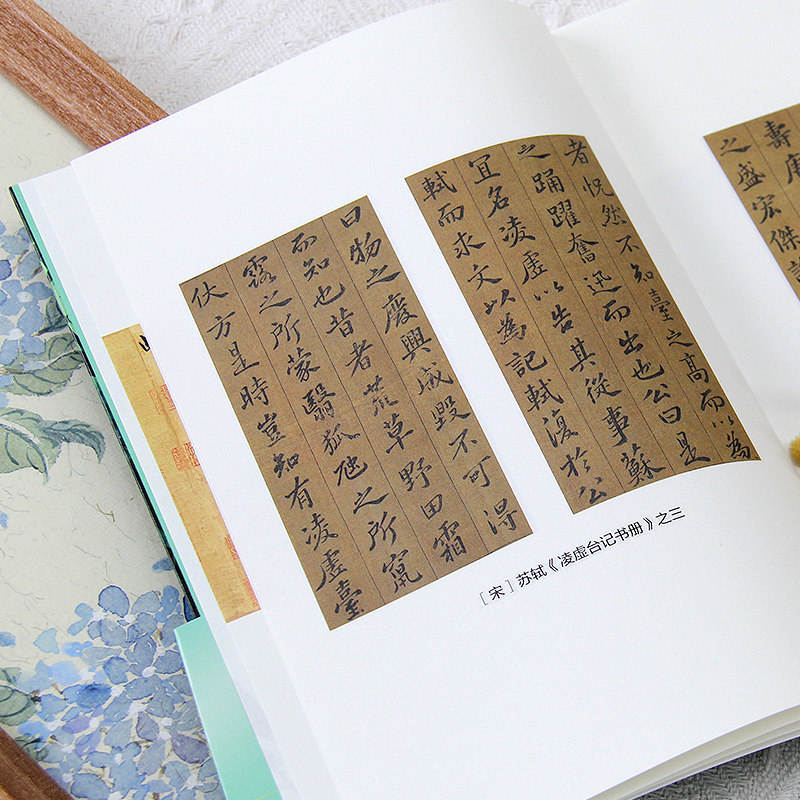 壽
之盛宏傑
者怳然不知臺之高而以為
之踊躍奮迅而出也公曰是
宜名凌虛以告其從事蘇
軾而求文以為記軾復於公
曰物之廢興成毀不可得
而知也昔者荒草野田霜
露之所蒙翳狐虺之所竄
伏方是時豈知有凌虛臺
［宋］苏轼《凌虚台记书册》之三